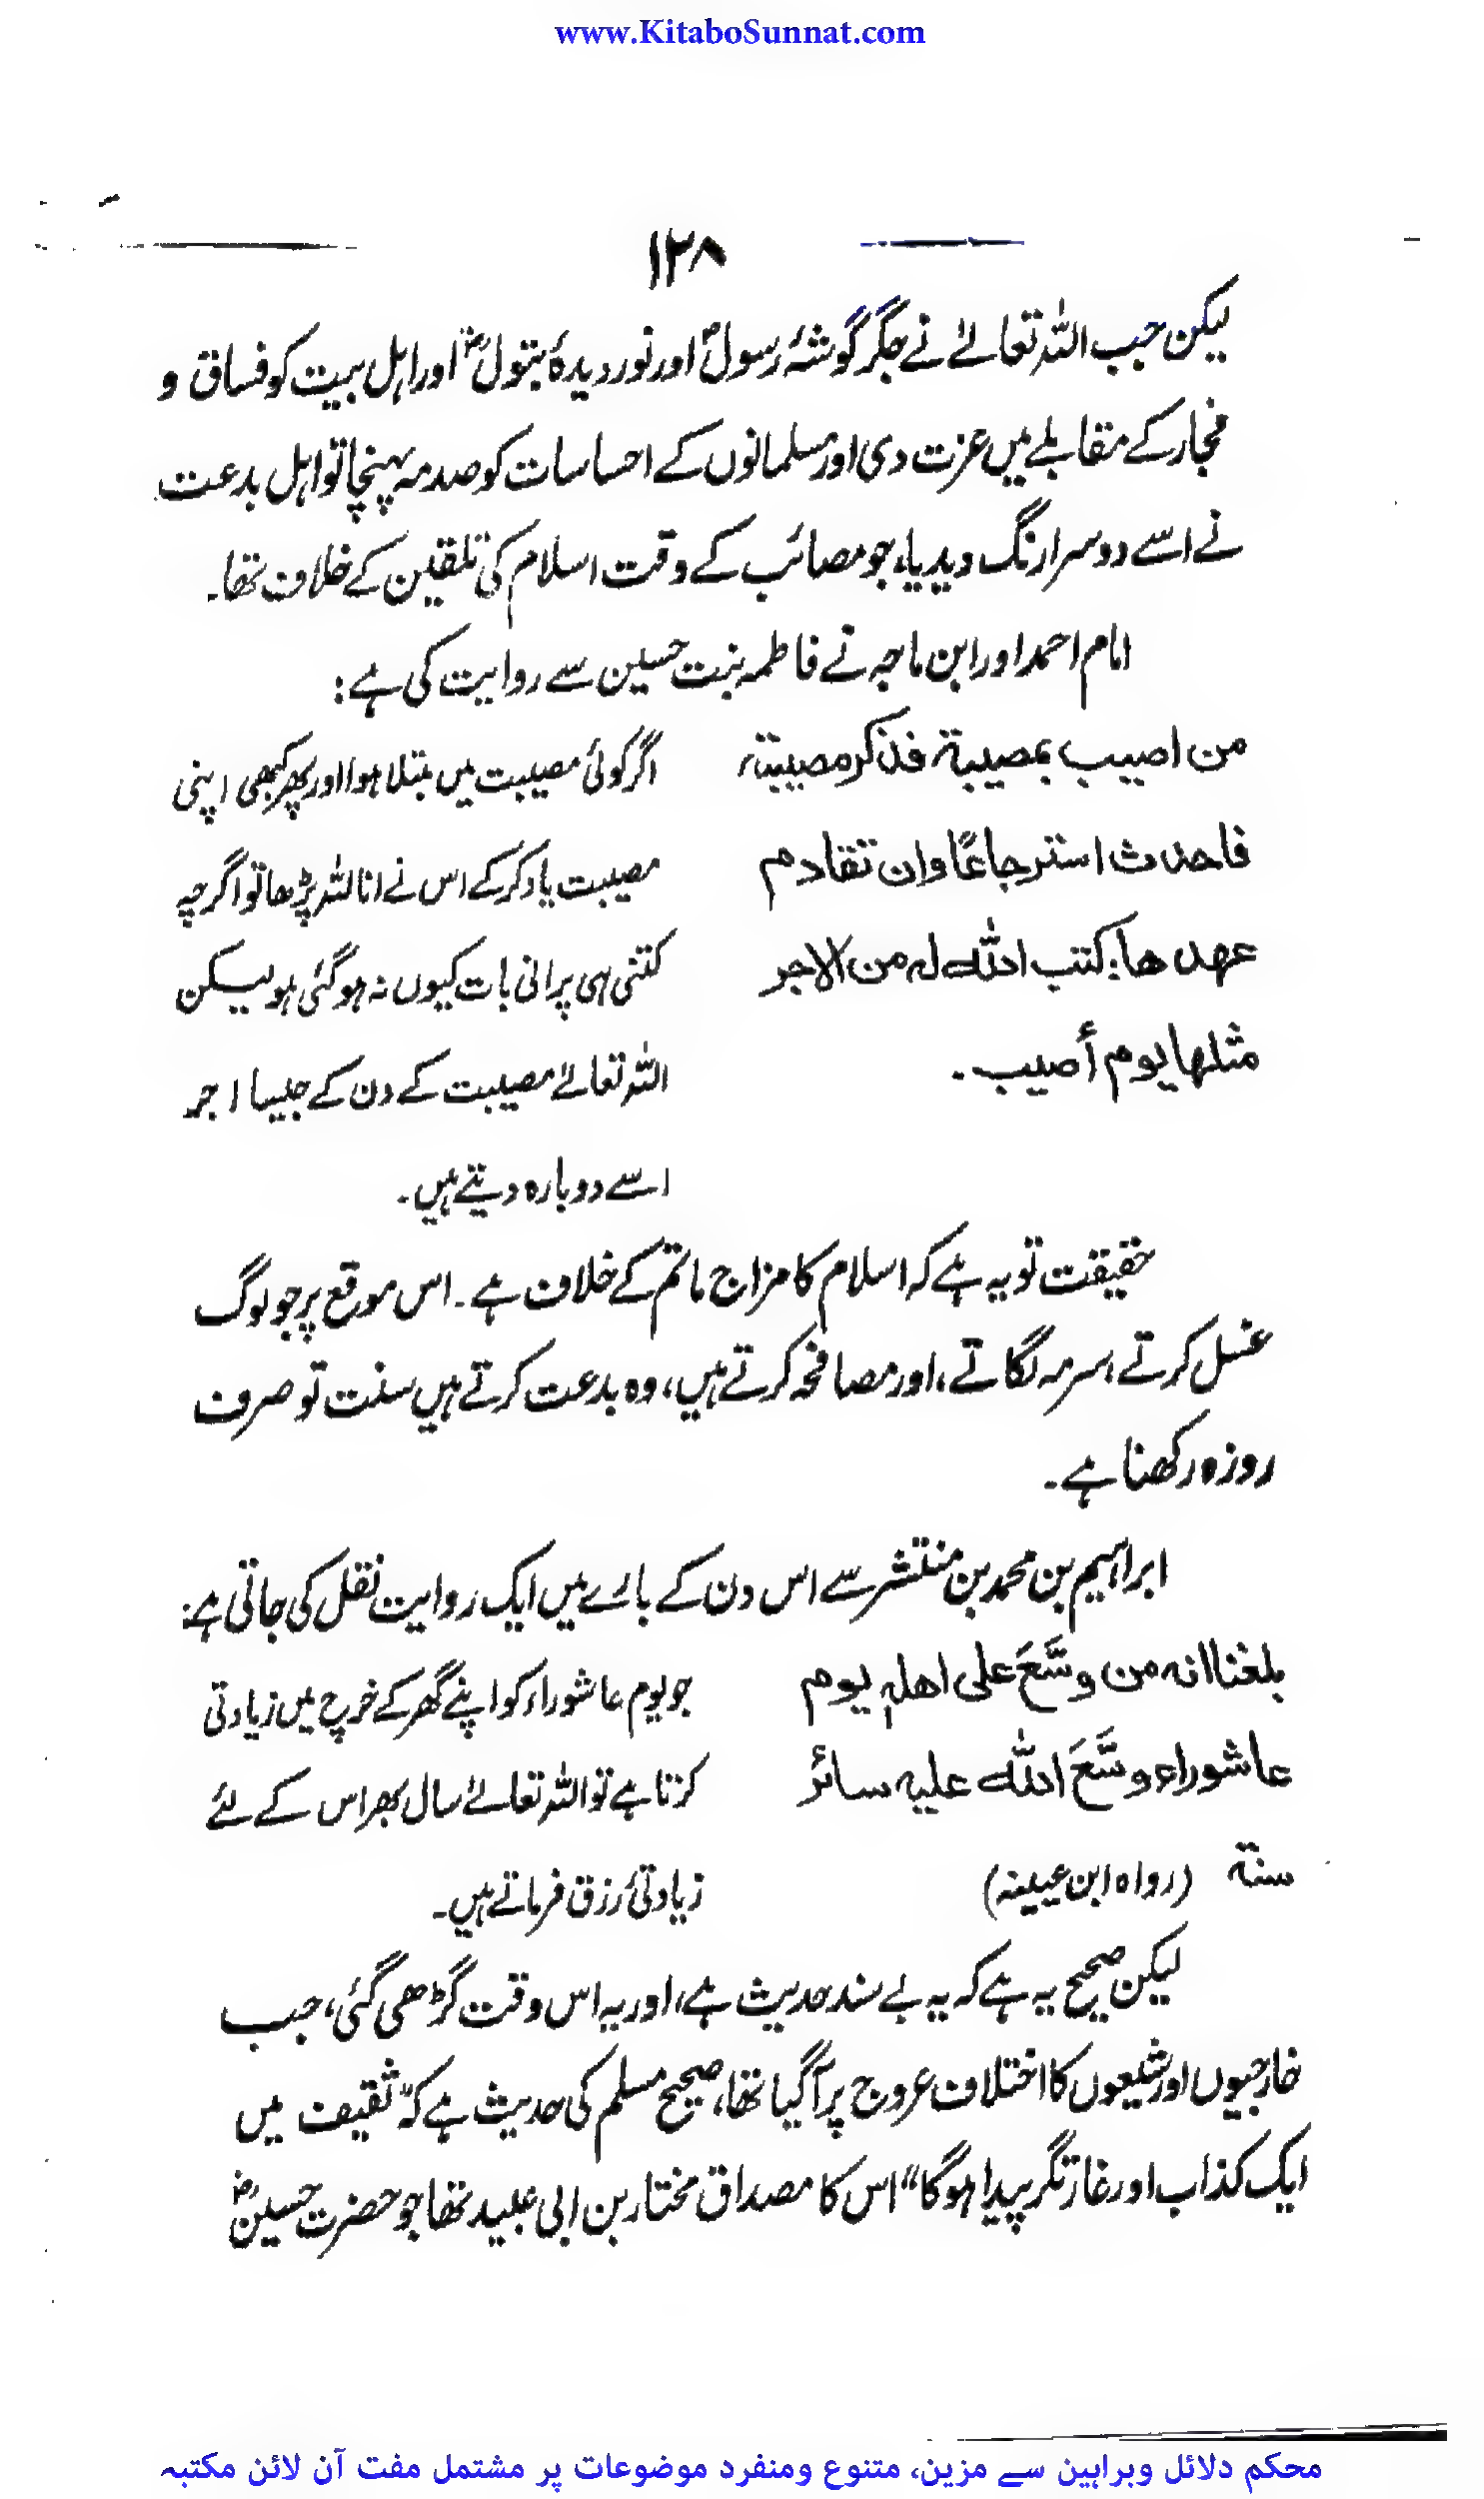 www.KitaboSunnat.com
۱۲۸
لیکن جب اللہ تعالےٰ نے جگر گوشۂ رسولؐ اور نور دیدۂ بتولؓ اور اہل بیت کو فساق و
فجار کے مقابلے میں عزت دی اور مسلمانوں کے احساسات کو صدمہ پہنچا تو اہل بدعت
نے اسے دوسرا رنگ دیدیا، جو مصائب کے وقت اسلام کی تلقین کے خلاف تھا۔
امام احمد اور ابن ماجہ نے فاطمہ بنت حسین سے روایت کی ہے:
من اصيب بمصيبة فذكر مصيبته
فاحدث استرجاعًا وان تقادم
عهدها: كتب الله له من الاجر
مثلها يوم أصيب.
اگر کوئی مصیبت میں مبتلا ہوا اور پھر کبھی اپنی
مصیبت یاد کرکے اس نے انا للہ پڑھا تو اگرچہ
کتنی ہی پرانی بات کیوں نہ ہوگئی ہو لیکن
اللہ تعالےٰ مصیبت کے دن کے جیسا اجر
اسے دوبارہ دیتے ہیں۔
حقیقت تو یہ ہے کہ اسلام کا مزاج ماتم کے خلاف ہے۔ اس موقع پر جو لوگ
غسل کرتے، سرمہ لگاتے، اور مصافحہ کرتے ہیں، وہ بدعت کرتے ہیں سنت تو صرف
روزہ رکھنا ہے۔
ابراہیم بن محمد بن منتشر سے اس دن کے بارے میں ایک روایت نقل کی جاتی ہے:
بلغنا انه من وسَّعَ على اهله يوم
عاشوراء وسَّعَ الله عليه سائر
سنة (رواه ابن عيينة)
جو یوم عاشوراء کو اپنے گھر کے خرچ میں زیادتی
کرتا ہے تو اللہ تعالےٰ سال بھر اس کے لئے
زیادتیٔ رزق فرماتے ہیں۔
لیکن صحیح یہ ہے کہ یہ بے سند حدیث ہے، اور یہ اس وقت گڑھی گئی، جب
خارجیوں اور شیعوں کا اختلاف عروج پر آگیا تھا، صحیح مسلم کی حدیث ہے کہ "ثقیف میں
ایک کذاب اور غارتگر پیدا ہوگا" اس کا مصداق مختار بن ابی عبید تھا جو حضرت حسینؓ
محکم دلائل وبراہین سے مزین، متنوع ومنفرد موضوعات پر مشتمل مفت آن لائن مکتبہ